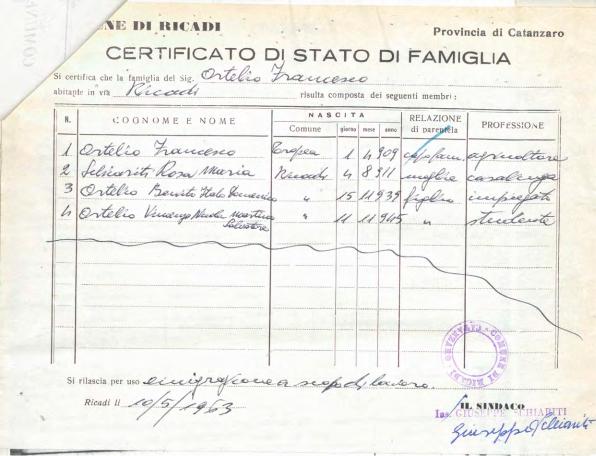 NE DI RICADI
Provincia di Catanzaro
CERTIFICATO DI STATO DI FAMIGLIA
Si certifica che la famiglia del Sig. Ortelio Francesco
abitante in via Ricadi risulta composta dei seguenti membri:
N. COGNOME E NOME NASCITA RELAZIONE di parentela PROFESSIONE
Comune giorno mese anno
1 Ortelio Francesco Tropea 1 4 909 capofam agricoltore
2 Schiariti Rosa Maria Ricadi 4 8 911 moglie casalinga
3 Ortelio Benito Italo Domenico " 15 11 939 figlio impiegato
4 Ortelio Vincenzo Nicola " 11 11 945 " studente
Salvatore
COMUNE DI RICADI CATANZARO
Si rilascia per uso emigrazione a scopo di lavoro.
Ricadi lì 10/5/1963
IL SINDACO
Ins. GIUSEPPE SCHIARITI
Giuseppe Schiariti